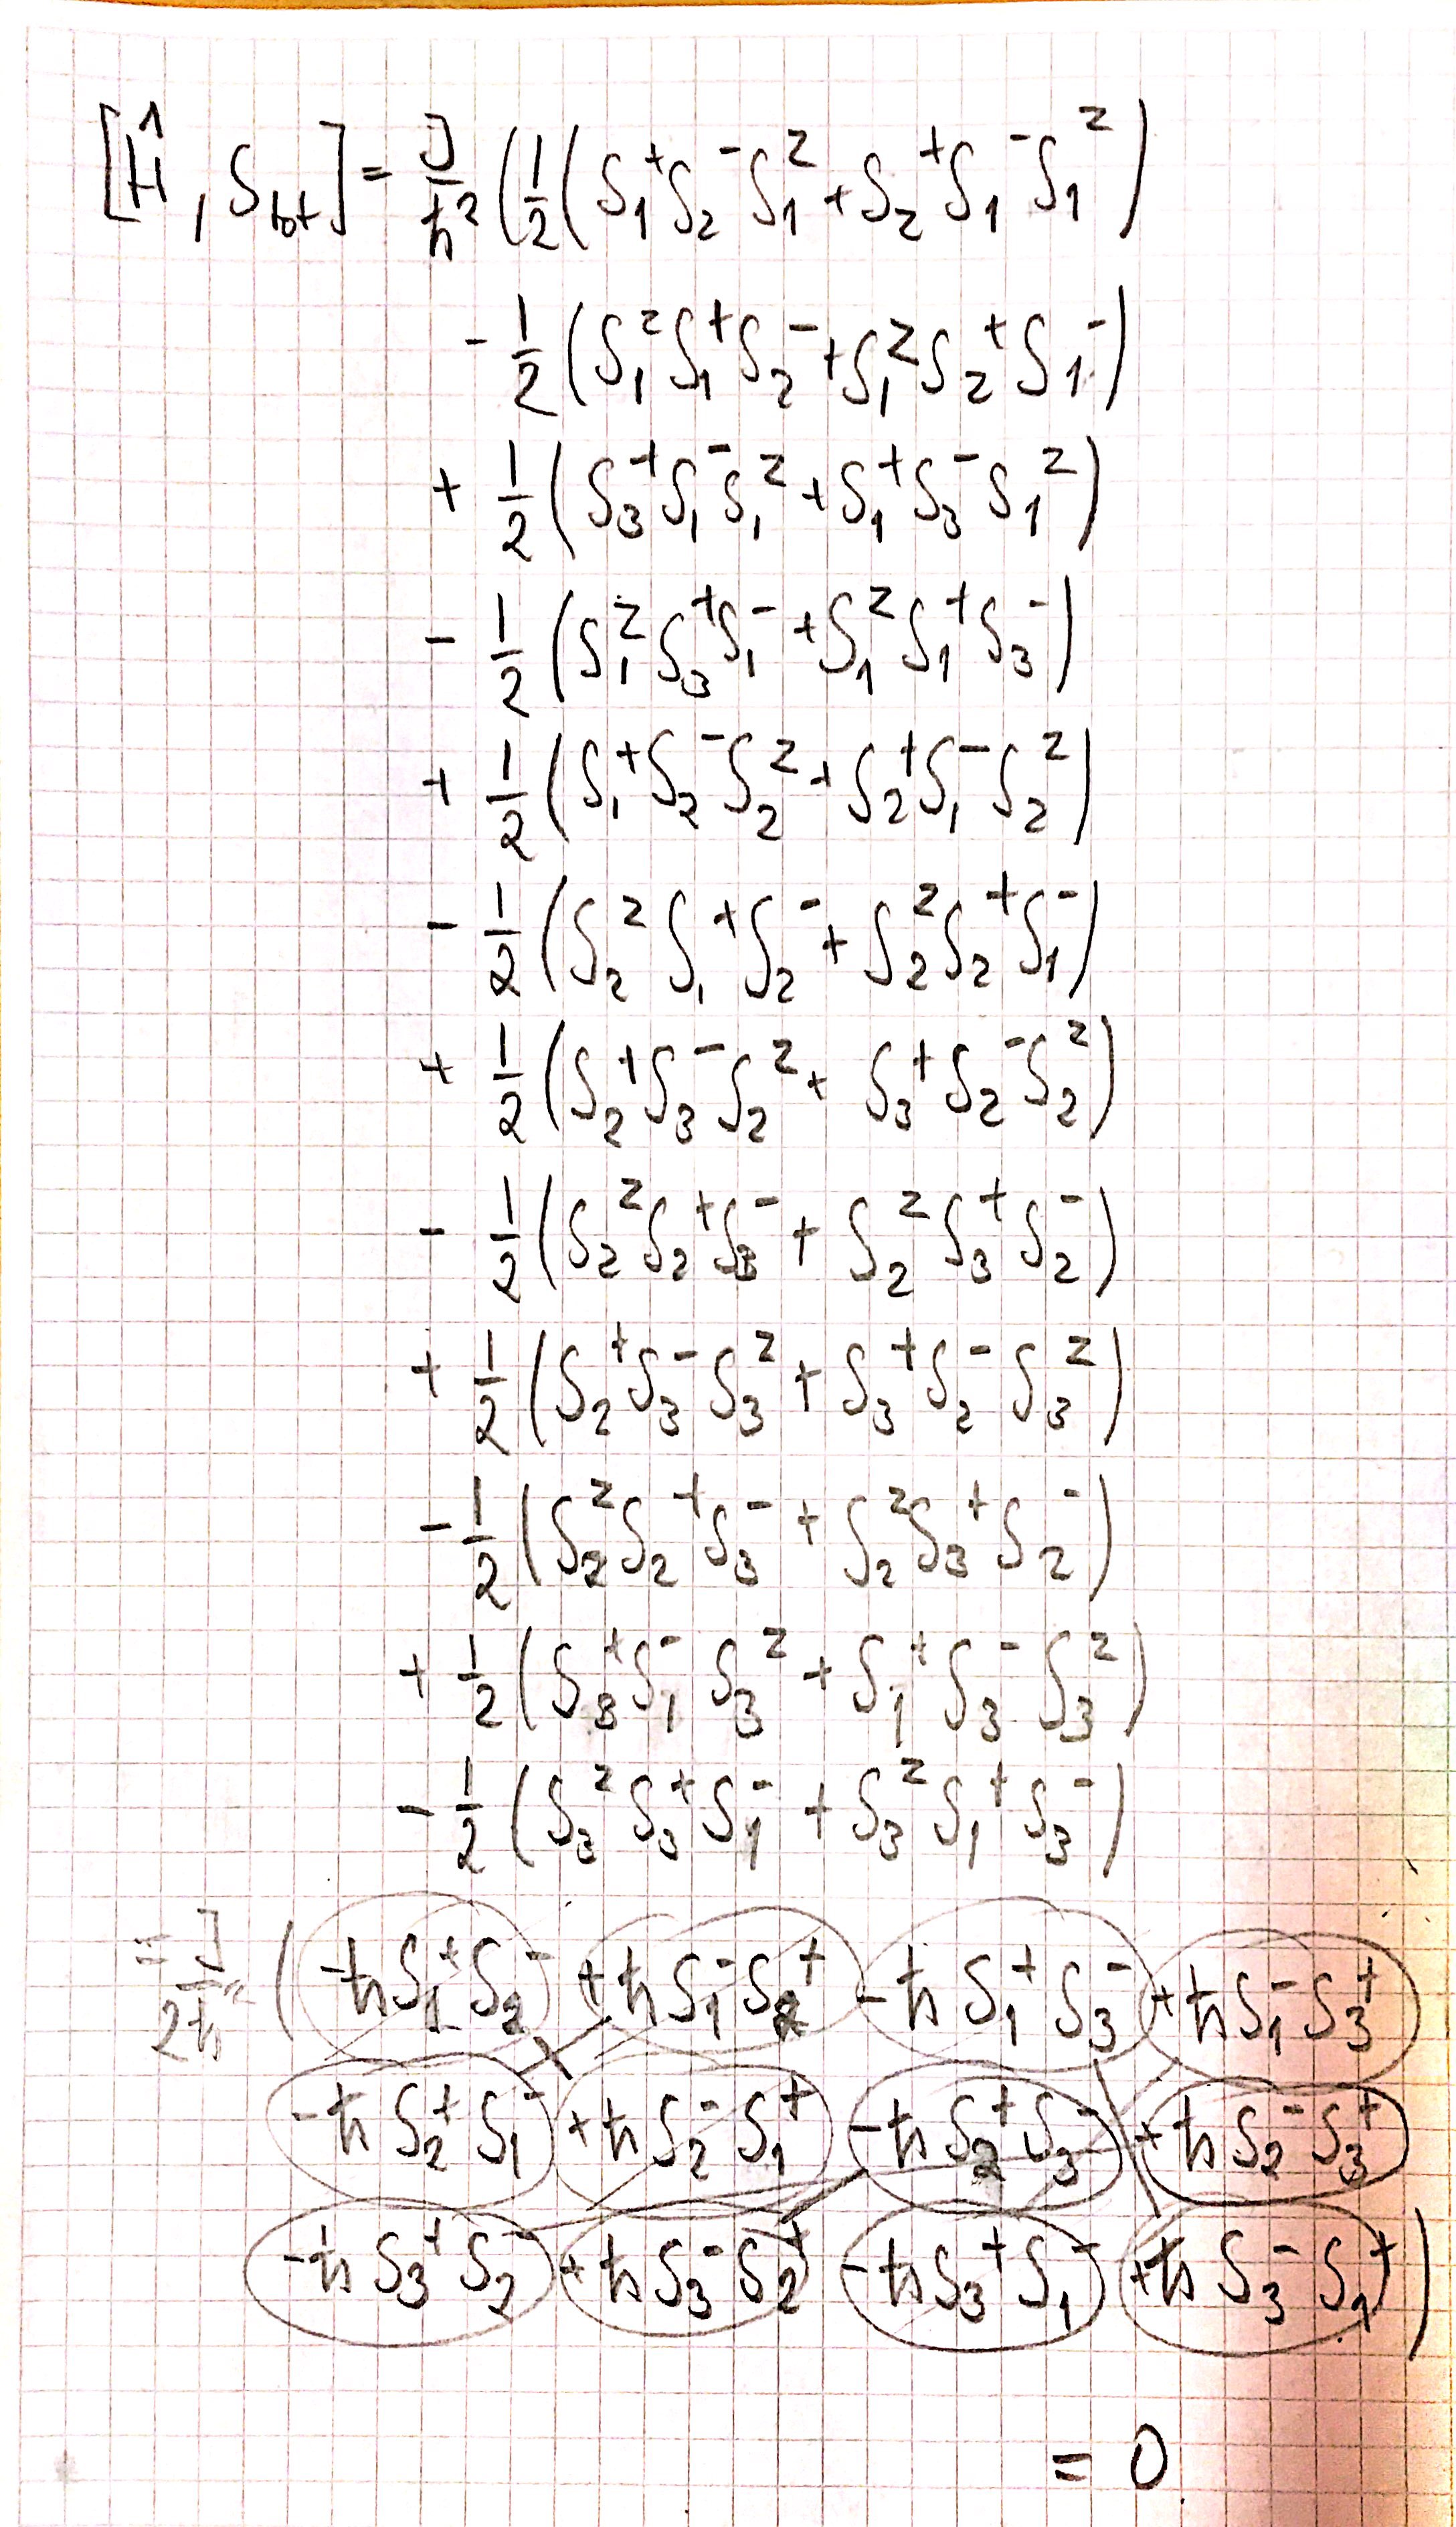 [Ĥ, S_tot] = J/ħ² (1/2 (S₁⁺S₂⁻S₁ᶻ + S₂⁺S₁⁻S₁ᶻ)
- 1/2 (S₁ᶻS₁⁺S₂⁻ + S₁ᶻS₂⁺S₁⁻)
+ 1/2 (S₃⁺S₁⁻S₁ᶻ + S₁⁺S₃⁻S₁ᶻ)
- 1/2 (S₁ᶻS₃⁺S₁⁻ + S₁ᶻS₁⁺S₃⁻)
+ 1/2 (S₁⁺S₂⁻S₂ᶻ + S₂⁺S₁⁻S₂ᶻ)
- 1/2 (S₂ᶻS₁⁺S₂⁻ + S₂ᶻS₂⁺S₁⁻)
+ 1/2 (S₂⁺S₃⁻S₂ᶻ + S₃⁺S₂⁻S₂ᶻ)
- 1/2 (S₂ᶻS₂⁺S₃⁻ + S₂ᶻS₃⁺S₂⁻)
+ 1/2 (S₂⁺S₃⁻S₃ᶻ + S₃⁺S₂⁻S₃ᶻ)
- 1/2 (S₂ᶻS₂⁺S₃⁻ + S₂ᶻS₃⁺S₂⁻)
+ 1/2 (S₃⁺S₁⁻S₃ᶻ + S₁⁺S₃⁻S₃ᶻ)
- 1/2 (S₃ᶻS₃⁺S₁⁻ + S₃ᶻS₁⁺S₃⁻)
= J/2ħ² (-ħS₁⁺S₂⁻ + ħS₁⁻S₂⁺ - ħS₁⁺S₃⁻ + ħS₁⁻S₃⁺
-ħS₂⁺S₁⁻ + ħS₂⁻S₁⁺ - ħS₂⁺S₃⁻ + ħS₂⁻S₃⁺
-ħS₃⁺S₂⁻ + ħS₃⁻S₂⁺ - ħS₃⁺S₁⁻ + ħS₃⁻S₁⁺)
= 0